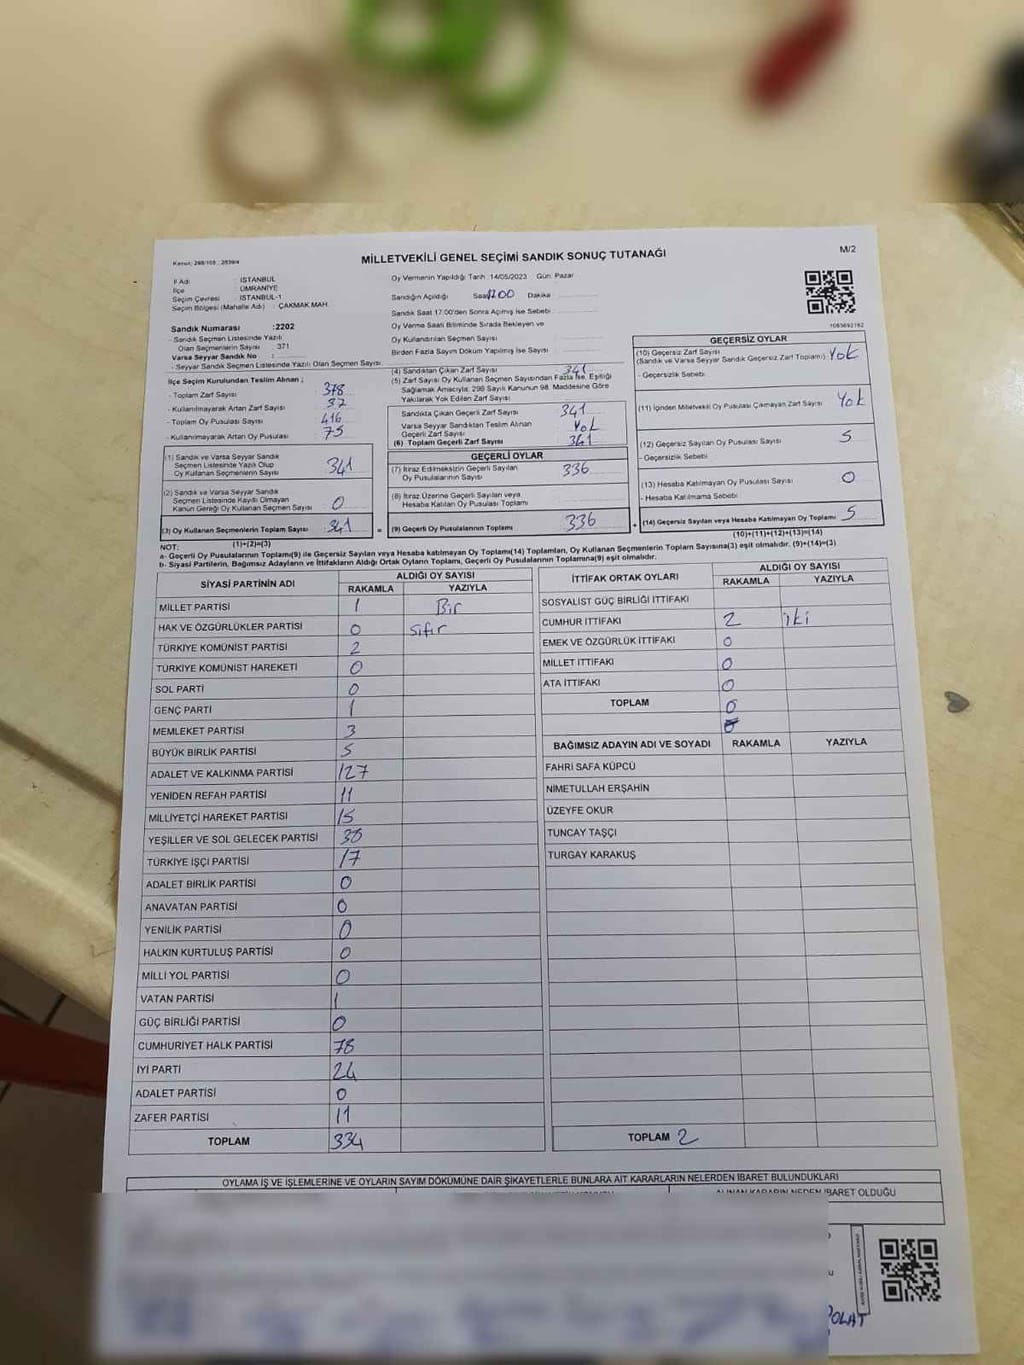 Kanun: 298/105 ; 2839/4
MİLLETVEKİLİ GENEL SEÇİMİ SANDIK SONUÇ TUTANAĞI
M/2
İl Adı : İSTANBUL
İlçe : ÜMRANİYE
Seçim Çevresi : İSTANBUL-1
Seçim Bölgesi (Mahalle Adı) : ÇAKMAK MAH.
Sandık Numarası :2202
- Sandık Seçmen Listesinde Yazılı
Olan Seçmenlerin Sayısı : 371
Varsa Seyyar Sandık No :
- Seyyar Sandık Seçmen Listesinde Yazılı Olan Seçmen Sayısı
Oy Vermenin Yapıldığı Tarih :14/05/2023 Gün: Pazar
Sandığın Açıldığı Saat Dakika
Sandık Saat 17.00'den Sonra Açılmış İse Sebebi :
Oy Verme Saati Bitiminde Sırada Bekleyen ve
Oy Kullandırılan Seçmen Sayısı :
Birden Fazla Sayım Döküm Yapılmış İse Sayısı :
İlçe Seçim Kurulundan Teslim Alınan ;
- Toplam Zarf Sayısı : 378
- Kullanılmayarak Artan Zarf Sayısı : 37
- Toplam Oy Pusulası Sayısı : 416
- Kullanılmayarak Artan Oy Pusulası : 75
(1) Sandık ve Varsa Seyyar Sandık
Seçmen Listesinde Yazılı Olup
Oy Kullanan Seçmenlerin Sayısı 341
(2) Sandık ve Varsa Seyyar Sandık
Seçmen Listesinde Kayıtlı Olmayan
Kanun Gereği Oy Kullanan Seçmen Sayısı 0
(3) Oy Kullanan Seçmenlerin Toplam Sayısı 341
(1)+(2)=(3)
(4) Sandıktan Çıkan Zarf Sayısı 341
(5) Zarf Sayısı Oy Kullanan Seçmen Sayısından Fazla İse, Eşitliği
Sağlamak Amacıyla, 298 Sayılı Kanunun 98. Maddesine Göre
Yakılarak Yok Edilen Zarf Sayısı
Sandıkta Çıkan Geçerli Zarf Sayısı 341
Varsa Seyyar Sandıktan Teslim Alınan
Geçerli Zarf Sayısı YoK
(6) Toplam Geçerli Zarf Sayısı 341
GEÇERLİ OYLAR
(7) İtiraz Edilmeksizin Geçerli Sayılan
Oy Pusulalarının Sayısı 336
(8) İtiraz Üzerine Geçerli Sayılan veya
Hesaba Katılan Oy Pusulası Toplamı
= (9) Geçerli Oy Pusulalarının Toplamı 336
1083692162
GEÇERSİZ OYLAR
(10) Geçersiz Zarf Sayısı
(Sandık ve Varsa Seyyar Sandık Geçersiz Zarf Toplamı) YoK
- Geçersizlik Sebebi
(11) İçinden Milletvekili Oy Pusulası Çıkmayan Zarf Sayısı YoK
(12) Geçersiz Sayılan Oy Pusulası Sayısı 5
- Geçersizlik Sebebi
(13) Hesaba Katılmayan Oy Pusulası Sayısı 0
- Hesaba Katılmama Sebebi
+ (14) Geçersiz Sayılan veya Hesaba Katılmayan Oy Toplamı 5
(10)+(11)+(12)+(13)=(14)
NOT:
a- Geçerli Oy Pusulalarının Toplamı(9) ile Geçersiz Sayılan veya Hesaba katılmayan Oy Toplamı(14) Toplamları, Oy Kullanan Seçmenlerin Toplam Sayısına(3) eşit olmalıdır. (9)+(14)=(3)
b- Siyasi Partilerin, Bağımsız Adayların ve İttifakların Aldığı Ortak Oyların Toplamı, Geçerli Oy Pusulalarının Toplamına(9) eşit olmalıdır.
SİYASİ PARTİNİN ADI ALDIĞI OY SAYISI
RAKAMLA YAZIYLA
MİLLET PARTİSİ 1 Bir
HAK VE ÖZGÜRLÜKLER PARTİSİ 0 Sıfır
TÜRKİYE KOMÜNİST PARTİSİ 2
TÜRKİYE KOMÜNİST HAREKETİ 0
SOL PARTİ 0
GENÇ PARTİ 1
MEMLEKET PARTİSİ 3
BÜYÜK BİRLİK PARTİSİ 5
ADALET VE KALKINMA PARTİSİ 127
YENİDEN REFAH PARTİSİ 11
MİLLİYETÇİ HAREKET PARTİSİ 15
YEŞİLLER VE SOL GELECEK PARTİSİ 38
TÜRKİYE İŞÇİ PARTİSİ 17
ADALET BİRLİK PARTİSİ 0
ANAVATAN PARTİSİ 0
YENİLİK PARTİSİ 0
HALKIN KURTULUŞ PARTİSİ 0
MİLLİ YOL PARTİSİ 0
VATAN PARTİSİ 1
GÜÇ BİRLİĞİ PARTİSİ 0
CUMHURİYET HALK PARTİSİ 78
İYİ PARTİ 24
ADALET PARTİSİ 0
ZAFER PARTİSİ 11
TOPLAM 334
İTTİFAK ORTAK OYLARI ALDIĞI OY SAYISI
RAKAMLA YAZIYLA
SOSYALİST GÜÇ BİRLİĞİ İTTİFAKI
CUMHUR İTTİFAKI 2 iki
EMEK VE ÖZGÜRLÜK İTTİFAKI 0
MİLLET İTTİFAKI 0
ATA İTTİFAKI 0
TOPLAM 0
BAĞIMSIZ ADAYIN ADI VE SOYADI RAKAMLA YAZIYLA
FAHRİ SAFA KÜPCÜ
NİMETULLAH ERŞAHİN
ÜZEYFE OKUR
TUNCAY TAŞÇI
TURGAY KARAKUŞ
TOPLAM 2
OYLAMA İŞ VE İŞLEMLERİNE VE OYLARIN SAYIM DÖKÜMÜNE DAİR ŞİKAYETLERLE BUNLARA AİT KARARLARIN NELERDEN İBARET BULUNDUKLARI
ALINAN KARARIN NEDEN İBARET OLDUĞU
POLAT